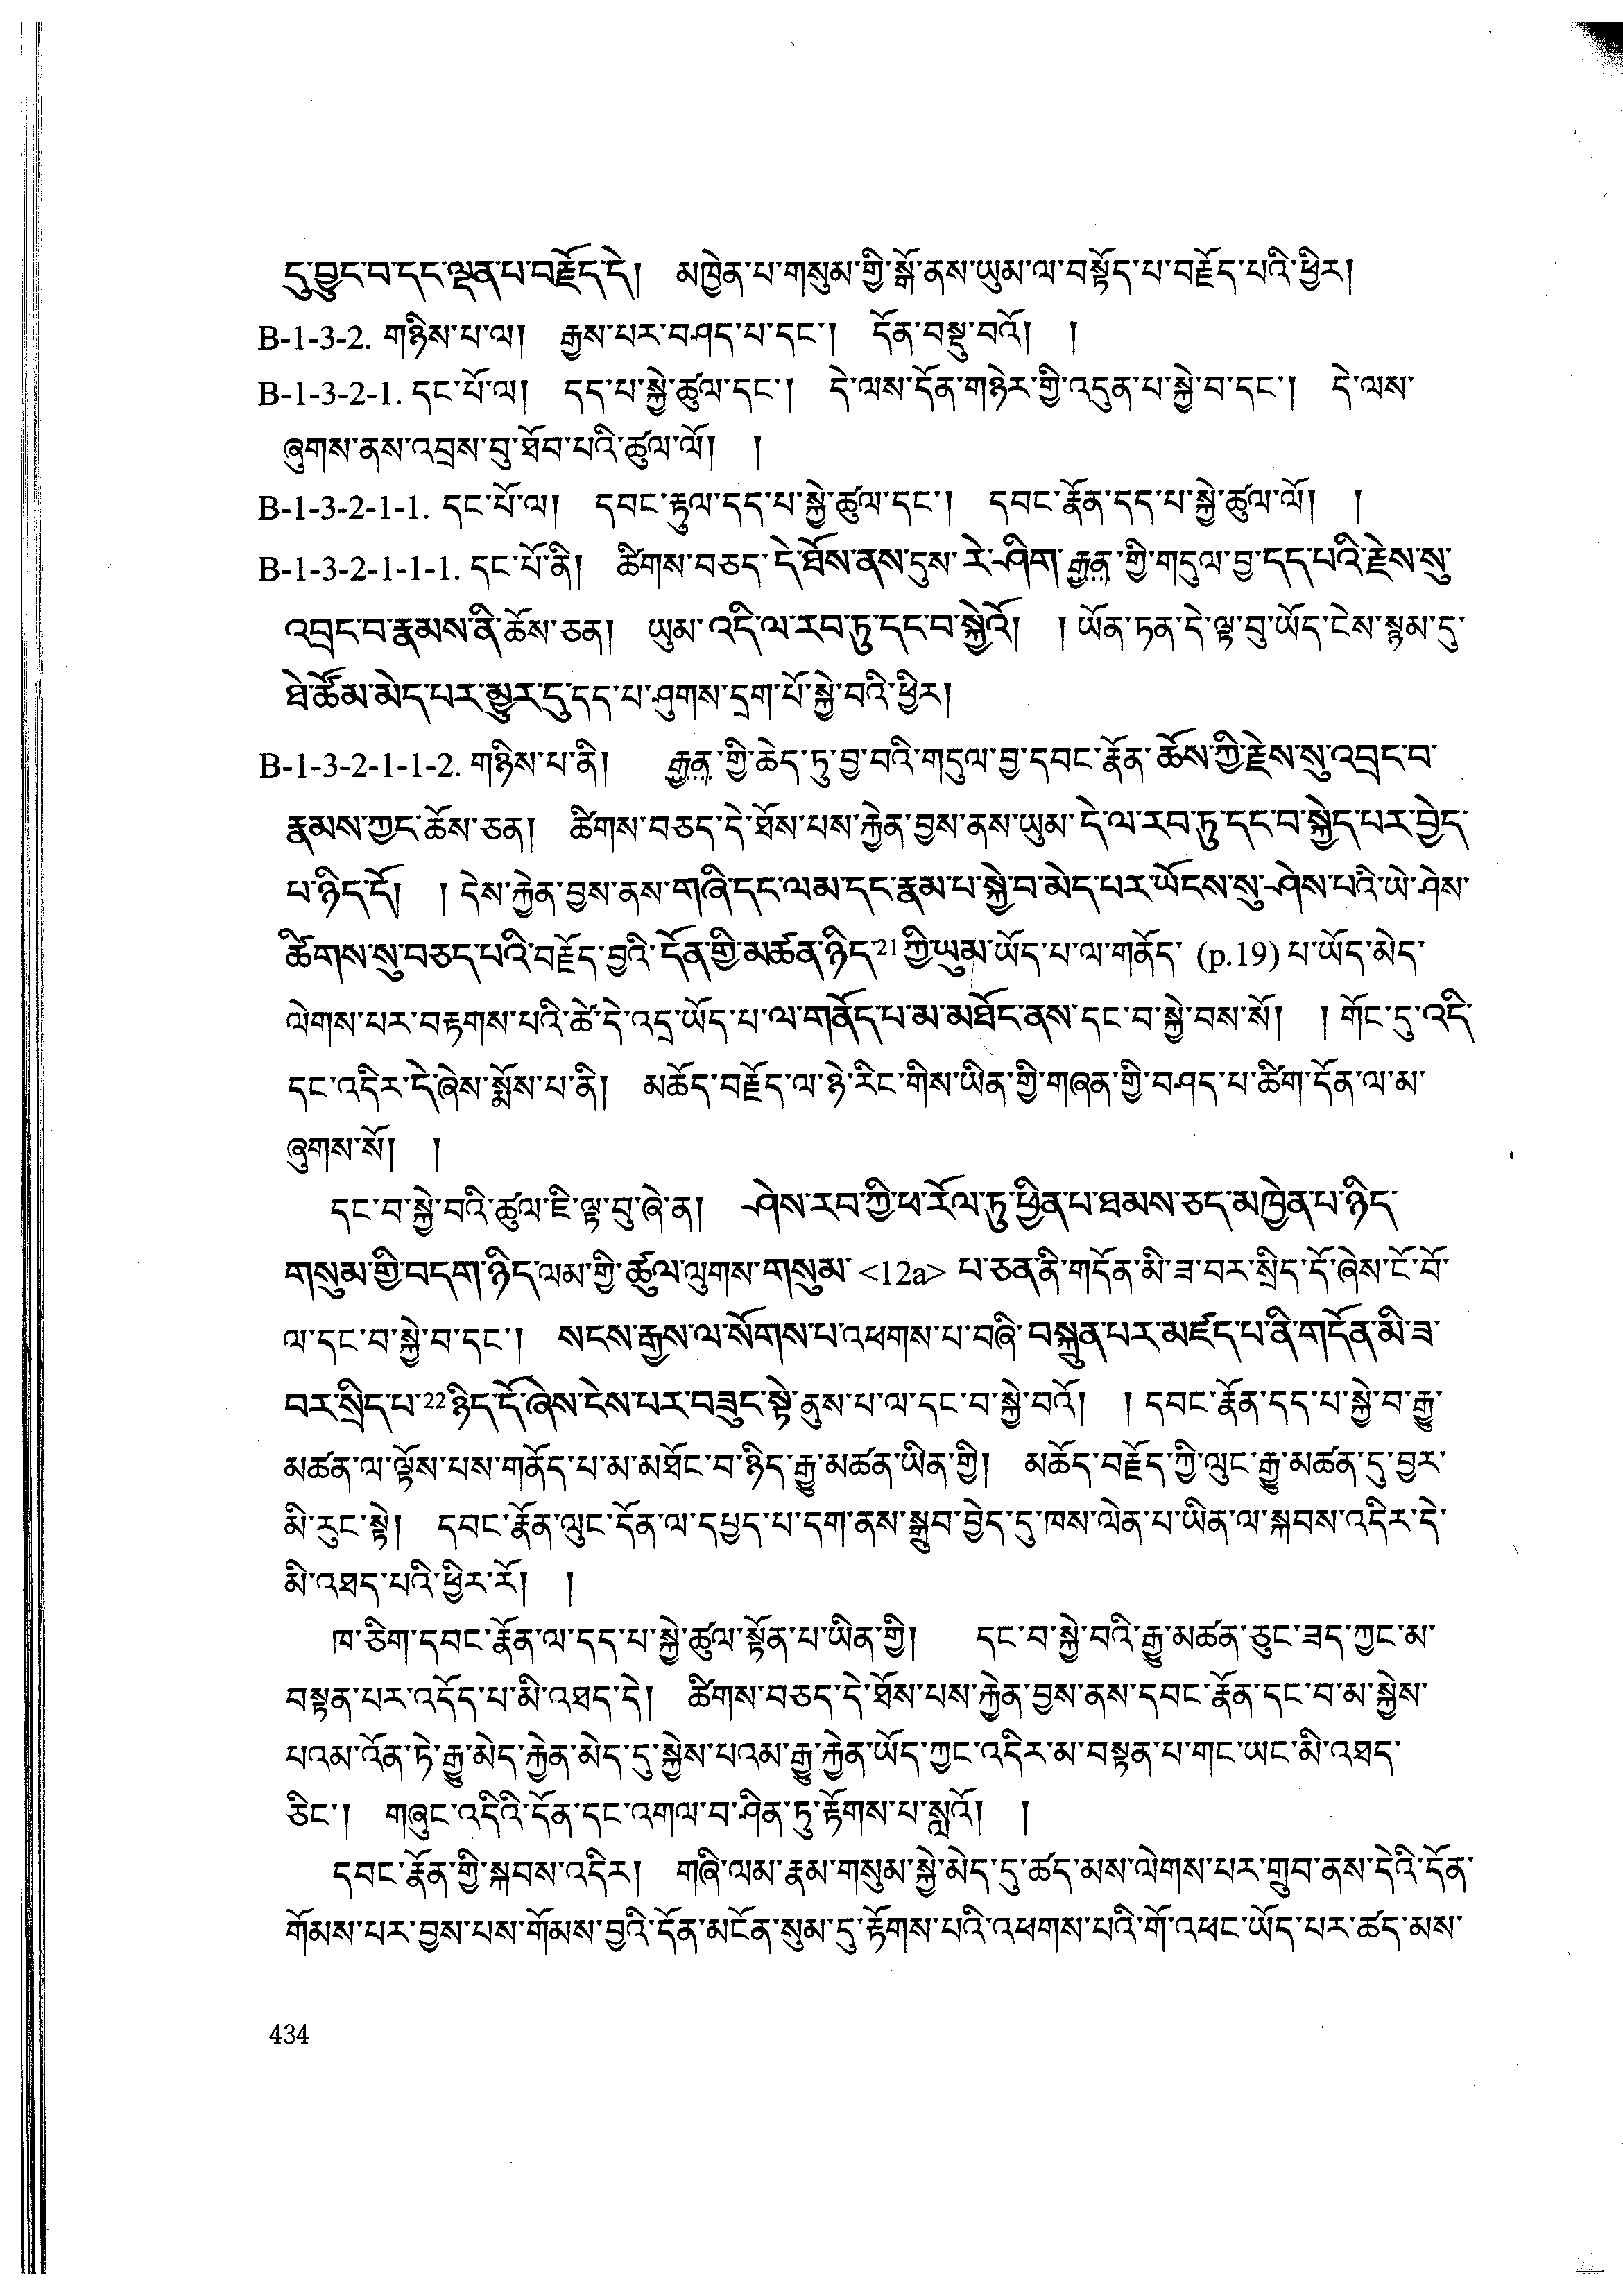 དུ་བྱུང་བ་དང་ལྡན་པ་བརྗོད་དེ། མཁྱེན་པ་གསུམ་གྱི་སྒོ་ནས་ཡུམ་ལ་བསྟོད་པ་བརྗོད་པའི་ཕྱིར།
B-1-3-2. གཉིས་པ་ལ། རྒྱས་པར་བཤད་པ་དང་། དོན་བསྡུ་བའོ། །
B-1-3-2-1. དང་པོ་ལ། དད་པ་སྐྱེ་ཚུལ་དང་། དེ་ལས་དོན་གཉེར་གྱི་འདུན་པ་སྐྱེ་བ་དང་། དེ་ལས་
ཞུགས་ནས་འབྲས་བུ་ཐོབ་པའི་ཚུལ་ལོ། །
B-1-3-2-1-1. དང་པོ་ལ། དབང་རྟུལ་དད་པ་སྐྱེ་ཚུལ་དང་། དབང་རྣོན་དད་པ་སྐྱེ་ཚུལ་ལོ། །
B-1-3-2-1-1-1. དང་པོ་ནི། ཚིགས་བཅད་དེ་ཐོས་ནས་དུས་རེ་ཤིག་རྒྱན་གྱི་གདུལ་བྱ་དད་པའི་རྗེས་སུ་
འབྲང་བ་རྣམས་ནི་ཆོས་ཅན། ཡུམ་འདི་ལ་རབ་ཏུ་དང་བ་སྐྱེའོ། །ཡོན་ཏན་དེ་ལྟ་བུ་ཡོད་ངེས་སྙམ་དུ་
ཐེ་ཚོམ་མེད་པར་མྱུར་དུ་དད་པ་ཤུགས་དྲག་པོ་སྐྱེ་བའི་ཕྱིར།
B-1-3-2-1-1-2. གཉིས་པ་ནི། རྒྱན་གྱི་ཆེད་དུ་བྱ་བའི་གདུལ་བྱ་དབང་རྣོན་ཆོས་ཀྱི་རྗེས་སུ་འབྲང་བ་
རྣམས་ཀྱང་ཆོས་ཅན། ཚིགས་བཅད་དེ་ཐོས་པས་རྐྱེན་བྱས་ནས་ཡུམ་དེ་ལ་རབ་ཏུ་དང་བ་སྐྱེད་པར་བྱེད་
པ་ཉིད་དོ། །དེས་རྐྱེན་བྱས་ནས་གཞི་དང་ལམ་དང་རྣམ་པ་སྐྱེ་བ་མེད་པར་ཡོངས་སུ་ཤེས་པའི་ཡེ་ཤེས་
ཚིགས་སུ་བཅད་པའི་བརྗོད་བྱའི་དོན་གྱི་མཚན་ཉིད་21ཀྱི་ཡུམ་ཡོད་པ་ལ་གནོད་ (p.19) པ་ཡོད་མེད་
ལེགས་པར་བརྟགས་པའི་ཚེ་དེ་འདྲ་ཡོད་པ་ལ་གནོད་པ་མ་མཐོང་ནས་དང་བ་སྐྱེ་བས་སོ། །གོང་དུ་འདི་
དང་འདིར་དེ་ཞེས་སྨོས་པ་ནི། མཆོད་བརྗོད་ལ་ཉེ་རིང་གིས་ཡིན་གྱི་གཞན་གྱི་བཤད་པ་ཚིག་དོན་ལ་མ་
ཞུགས་སོ། །
དང་བ་སྐྱེ་བའི་ཚུལ་ཇི་ལྟ་བུ་ཞེ་ན། ཤེས་རབ་ཀྱི་ཕ་རོལ་ཏུ་ཕྱིན་པ་ཐམས་ཅད་མཁྱེན་པ་ཉིད་
གསུམ་གྱི་བདག་ཉིད་ལམ་གྱི་ཚུལ་ལུགས་གསུམ་ <12a> པ་ཅན་ནི་གདོན་མི་ཟ་བར་སྲིད་དོ་ཞེས་ངོ་བོ་
ལ་དང་བ་སྐྱེ་བ་དང་། སངས་རྒྱས་ལ་སོགས་པ་འཕགས་པ་བཞི་བསྐྲུན་པར་མཛད་པ་ནི་གདོན་མི་ཟ་
བར་སྲིད་པ་22ཉིད་དོ་ཞེས་ངེས་པར་བཟུང་སྟེ་ནུས་པ་ལ་དང་བ་སྐྱེ་བའོ། །དབང་རྣོན་དད་པ་སྐྱེ་བ་རྒྱུ་
མཚན་ལ་ལྟོས་པས་གནོད་པ་མ་མཐོང་བ་ཉིད་རྒྱུ་མཚན་ཡིན་གྱི། མཆོད་བརྗོད་ཀྱི་ལུང་རྒྱུ་མཚན་དུ་བྱར་
མི་རུང་སྟེ། དབང་རྣོན་ལུང་དོན་ལ་དཔྱད་པ་དག་ནས་སྒྲུབ་བྱེད་དུ་ཁས་ལེན་པ་ཡིན་ལ་སྐབས་འདིར་དེ་
མི་འཐད་པའི་ཕྱིར་རོ། །
ཁ་ཅིག་དབང་རྣོན་ལ་དད་པ་སྐྱེ་ཚུལ་སྟོན་པ་ཡིན་གྱི། དང་བ་སྐྱེ་བའི་རྒྱུ་མཚན་ཅུང་ཟད་ཀྱང་མ་
བསྟན་པར་འདོད་པ་མི་འཐད་དེ། ཚིགས་བཅད་དེ་ཐོས་པས་རྐྱེན་བྱས་ནས་དབང་རྣོན་དང་བ་མ་སྐྱེས་
པའམ་འོན་ཏེ་རྒྱུ་མེད་རྐྱེན་མེད་དུ་སྐྱེས་པའམ་རྒྱུ་རྐྱེན་ཡོད་ཀྱང་འདིར་མ་བསྟན་པ་གང་ཡང་མི་འཐད་
ཅིང་། གཞུང་འདིའི་དོན་དང་འགལ་བ་ཤིན་ཏུ་རྟོགས་པ་སླའོ། །
དབང་རྣོན་གྱི་སྐབས་འདིར། གཞི་ལམ་རྣམ་གསུམ་སྐྱེ་མེད་དུ་ཚད་མས་ལེགས་པར་གྲུབ་ནས་དེའི་དོན་
གོམས་པར་བྱས་པས་གོམས་བྱའི་དོན་མངོན་སུམ་དུ་རྟོགས་པའི་འཕགས་པའི་གོ་འཕང་ཡོད་པར་ཚད་མས་
434